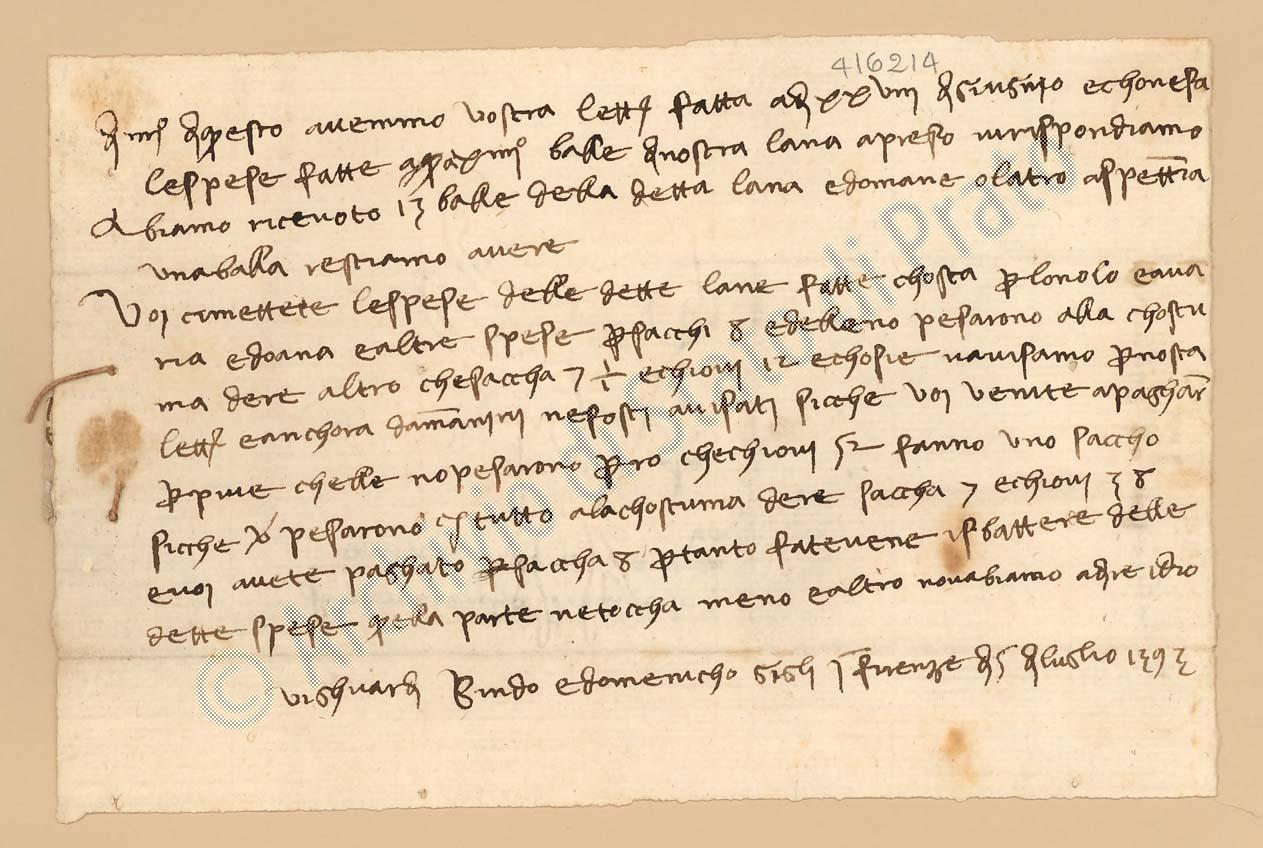 416214
dì IIII di questo avemmo vostra lett. fatta a dì XXVIII di giugnio e chon esa
le spese fatte balle di nostra lana apreso vi rispondiamo
Abiamo ricevuto 13 balle della detta lana e domane o l'atro aspettiamo
una balla restiamo avere
Voi ci mettete le spese delle dette lane fatte chosta per lo nolo e ava
ria e doana e altre spese per sacchi 8 ed elle no pesarono alla chostu
ma dere altro che saccha 7 e chiovi 12 e chosie v'avisamo per nosta
lett. e anchora da Mannini ne fosti avisati sicche voi venite a paghare
per piue ch'elle no pesarono pero che chiovi 52 fanno uno saccho
sicche pesarono tutto a la chostuma dere saccha 7 e chiovi 38
e voi avete paghato per saccha 8 per tanto fatevene isbattere delle
dette spese quella parte ne toccha meno e altro no v'abiamo a dire Idio
vi ghuardi Bindo e Domenicho Gigli in Firenze dì 5 di luglio 1393
© Archivio di Stato di Prato